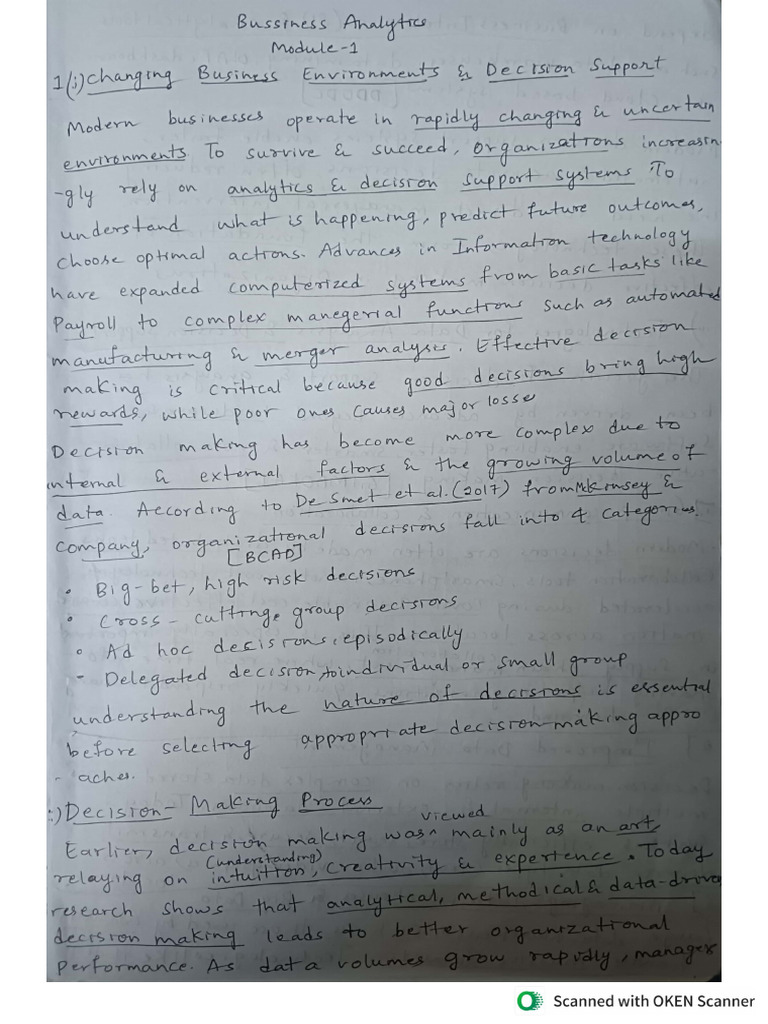 Bussiness Analytics
Module-1
1(i) Changing Business Environments & Decision Support
Modern businesses operate in rapidly changing & uncertain
environments To survive & succeed, organizations increasin
-gly rely on analytics & decision support systems To
understand what is happening, predict future outcomes,
choose optimal actions. Advances in Information technology
have expanded computerized systems from basic tasks like
Payroll to complex manegerial functions such as automated
manufacturing & merger analysis. Effective decision
making is critical because good decisions bring high
rewards, while poor ones causes major losse
Decision making has become more complex due to
internal & external factors & the growing volume of
data. According to De Smet et al. (2017) from Mckinsey &
company, organizational decisions fall into 4 categories.
[BCAD]
• Big-bet, high risk decisions
• Cross-cutting, group decisions
• Ad hoc decisions, episodically
- Delegated decision, to individual or small group
understanding the nature of decisions is essential
before selecting appropriate decision-making appro
-aches.
:) Decision-Making Process
viewed
Earlier, decision making was^ mainly as an art,
(understanding)
relaying on intuition, creativity & expertence. Today
research shows that analytical, methodical & data-driven
decision making leads to better organizational
performance. As data volumes grow rapidly, manager
Scanned with OKEN Scanner